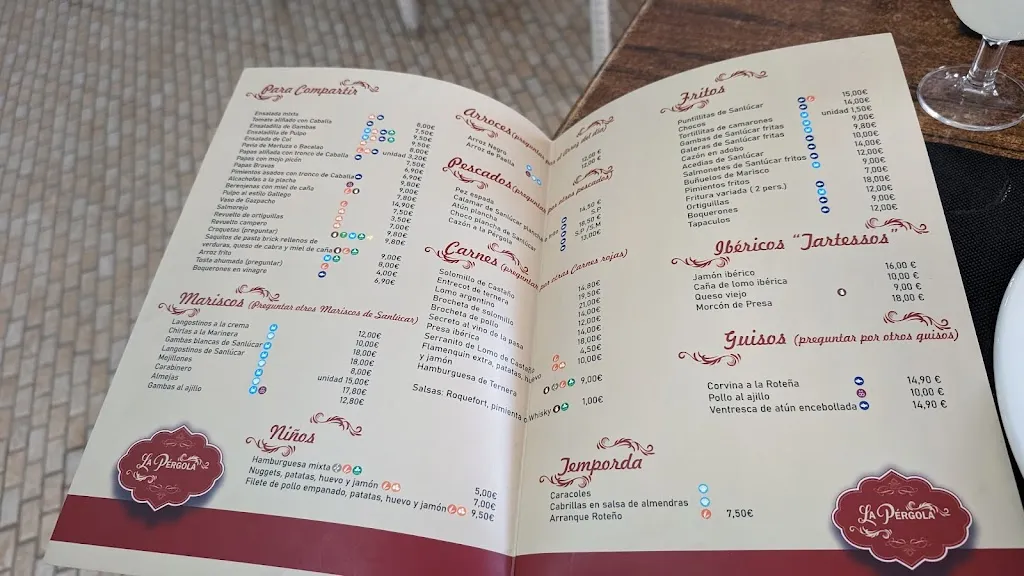 Para Compartir
Ensalada mixta 8,00€
Tomate aliñado con Caballa 7,50€
Ensaladilla de Gambas 9,50€
Ensaladilla de Pulpo 9,50€
Ensalada de Col 8,00€
Pavía de Merluza o Bacalao unidad 3,20€
Papas aliñadas con tronco de Caballa 7,50€
Papas con mojo picón 6,90€
Papas Bravas 6,90€
Pimientos asados con tronco de Caballa 9,80€
Alcachofas a la plancha 9,00€
Berenjenas con miel de caña 7,80€
Pulpo al estilo Gallego 14,90€
Vaso de Gazpacho
Salmorejo
Revuelto de ortiguillas
Revuelto campero
Croquetas (preguntar)
Saquitos de pasta brick rellenos de
verduras, queso de cabra y miel de caña
Arroz frito
Tosta ahumada (preguntar) 4,00€
Boquerones en vinagre 6,90€
Mariscos (Preguntar otros Mariscos de Sanlúcar)
Langostinos a la crema 12,00€
Chirlas a la Marinera 10,00€
Gambas blancas de Sanlúcar 18,00€
Langostinos de Sanlúcar 18,00€
Mejillones 8,00€
Carabinero unidad 15,00€
Almejas 17,80€
Gambas al ajillo 12,80€
Niños
Hamburguesa mixta 5,00€
Nuggets, patatas, huevo y jamón 7,00€
Filete de pollo empanado, patatas, huevo y jamón 9,50€
La Pérgola
Arroces (preguntar
Arroz Negro
Arroz de Paella
Pescados (preguntar por otros pescados)
Pez espada 14,50 €
Calamar de Sanlúcar plancha S.P
Atún plancha 18,50 €
Choco plancha de Sanlúcar S.P /S.M
Cazón a la Pérgola 13,00€
Carnes (preguntar por otras Carnes rojas)
Solomillo de Castaño 14,80€
Entrecot de ternera 19,50€
Lomo argentino 21,00€
Brocheta de solomillo 14,00€
Brocheta de pollo 12,00€
Secreto al vino de la pasa 14,00€
Presa ibérica 18,00€
Serranito de Lomo de Castaño 4,50€
Flamenquín extra, patatas, huevo
y jamón 10,00€
Hamburguesa de Ternera 9,00€
Salsas: Roquefort, pimienta o Whisky 1,00€
Fritos
Puntillitas de Sanlúcar 15,00€
Chocos 14,00€
Tortillitas de camarones unidad 1,50€
Gambas de Sanlúcar fritas 9,00€
Galeras de Sanlúcar fritas 9,80€
Cazón en adobo 10,00€
Acedías de Sanlúcar 14,00€
Salmonetes de Sanlúcar fritos 12,00€
Buñuelos de Marisco 9,00€
Pimientos fritos 7,00€
Fritura variada ( 2 pers.) 18,00€
Ortiguillas 12,00€
Boquerones 9,00€
Tapaculos 12,00€
Ibéricos "Tartessos"
Jamón ibérico 16,00 €
Caña de lomo ibérica 10,00 €
Queso viejo 9,00 €
Morcón de Presa 18,00 €
Guisos (preguntar por otros guisos)
Corvina a la Roteña 14,90 €
Pollo al ajillo 10,00 €
Ventresca de atún encebollada 14,90 €
Temporda
Caracoles
Cabrillas en salsa de almendras
Arranque Roteño 7,50€
La Pérgola